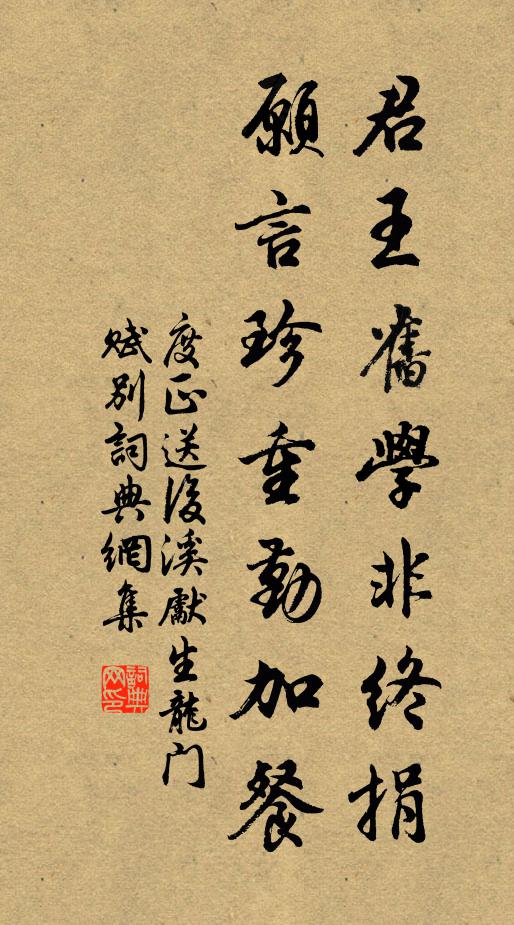 君王舊學非終捐
願言珍重勤加餐
度正送後溪獻生龍门
赋别詞典網集
詞典网印